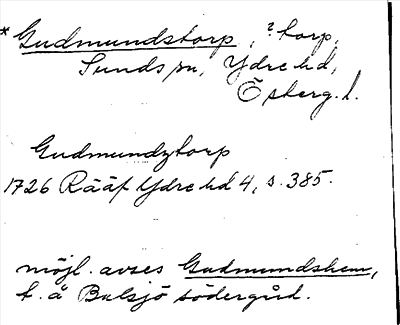 * Gudmundstorp, ? torp,
Sunds sn, Ydre hd,
Österg. l.
Gudmundztorp
1726 Rääf Ydre hd 4, s. 385.
möjl. avses Gudmundshem,
t. å Bulsjö södergård.